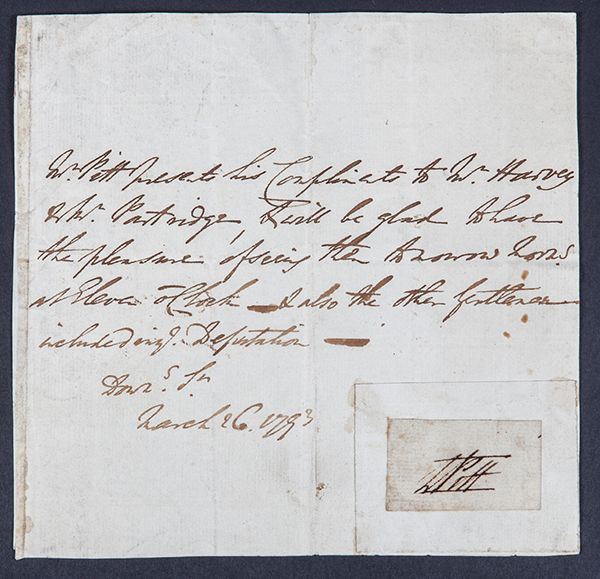 Mr. Pitt presents his Compliments to Mr. Harvey
& Mr. Partridge, & will be glad to have
the pleasure of seeing them tomorow Morng.
at Eleven o'Clock — & also the other Gentlemen
included in ye. Deputation —
Downg. St.
March 26. 1793
W Pitt